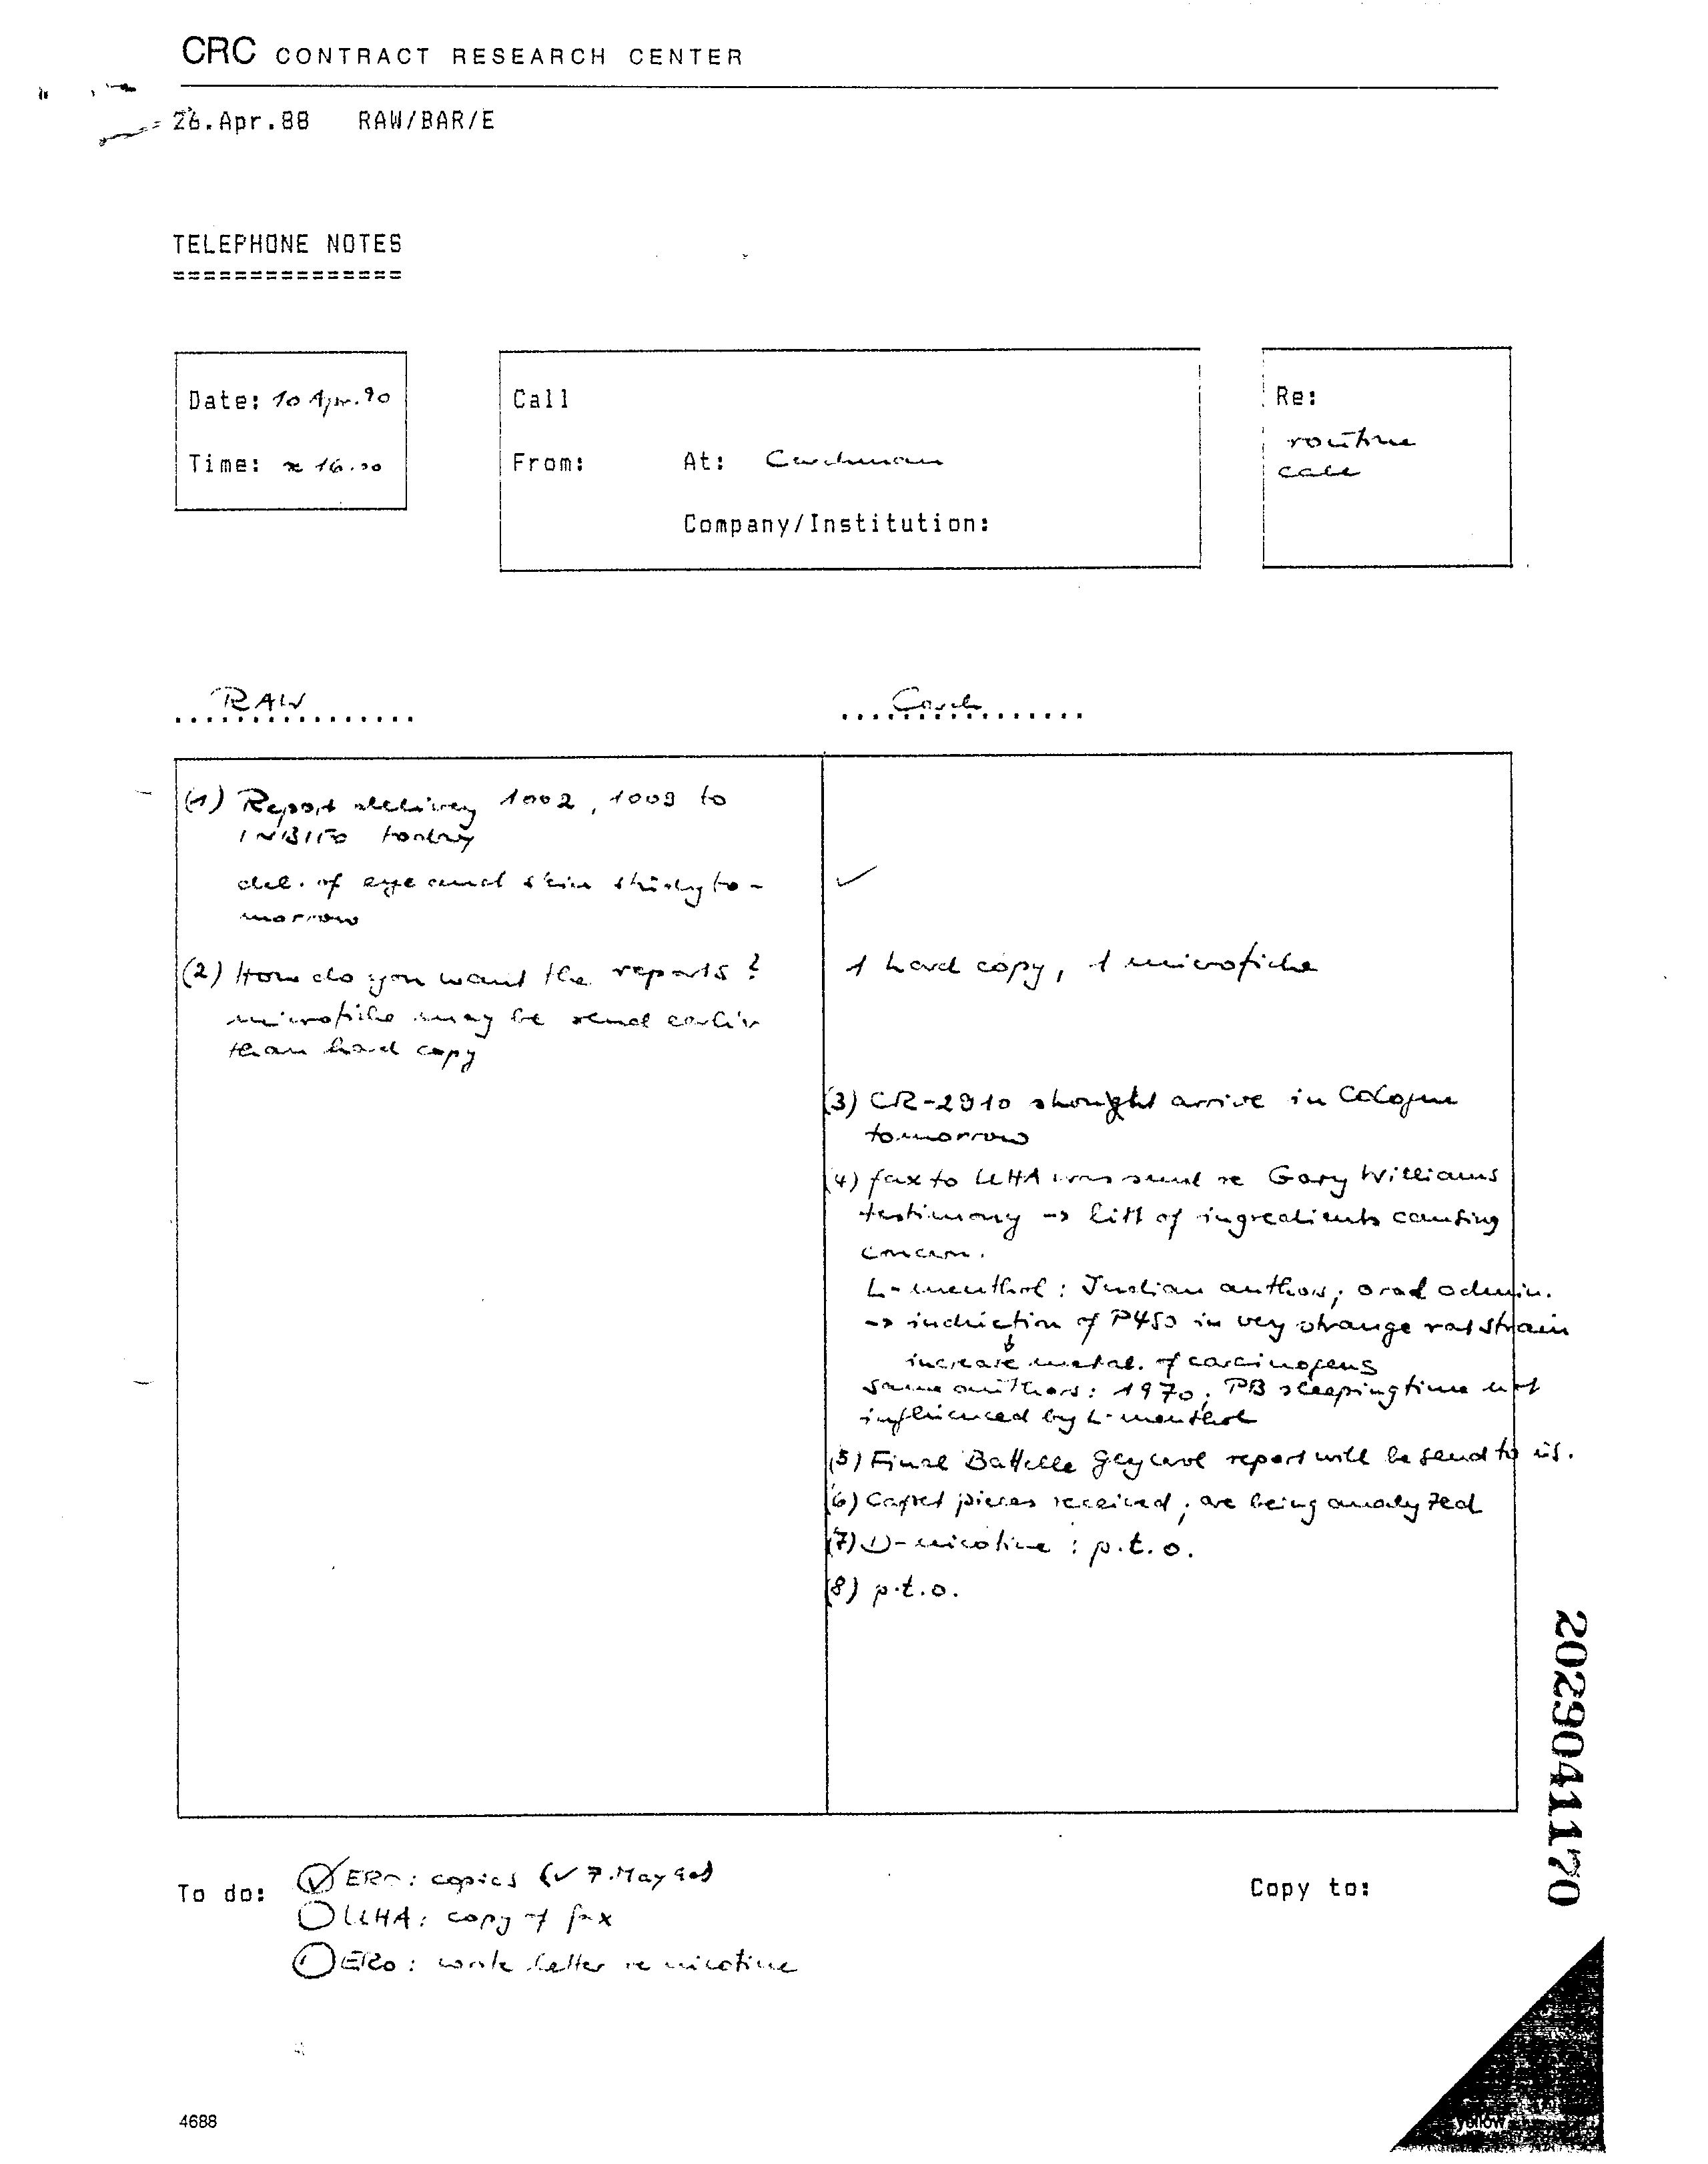 CRC CONTRACT RESEARCH CENTER
26.Apr.88 RAW/BAR/E
TELEPHONE NOTES
===============
Date: 10 Apr. 90
Time: ≈ 16.00
Call
From: At: Carchman
Company/Institution:
Re:
routine
call
RAW
Carch
(1) Report delivery 1002, 1009 to
INBIFO today
del. of eye and skin study to-
morrow
✓
(2) How do you want the reports?
microfiche may be send earlier
than hard copy
1 hard copy, 1 microfiche
(3) CR-2910 shought arrive in Cologne
tomorrow
(4) fax to UHA was send re Gary Williams
testimony -> list of ingredients causing
concern.
L-menthol: Indian authors; oral admin.
-> induction of P450 in very strange rat strain
increase metab. of carcinogens
same authors: 1970; PB sleeping time not
influenced by L-menthol
(5) Final Battelle Glycerol report will be send to us.
(6) Carpet pieces received; are being analyzed
(7) D-nicotine: p.t.o.
(8) p.t.o.
To do: ✓ ERO: copies (✓ 7. May 90)
UHA: copy of fax
ERO: write letter re nicotine
Copy to:
2029041170
4688
yellow